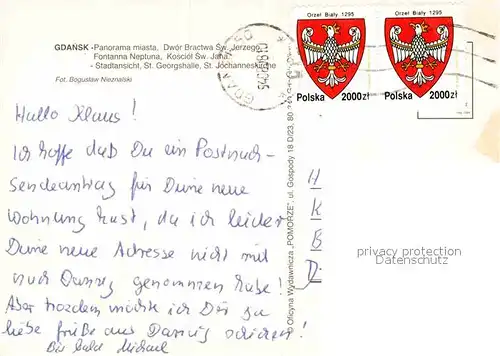 GDAŃSK - Panorama miasta, Dwór Bractwa Św. Jerzego,
Fontanna Neptuna, Kościół Św. Jana
- Stadtansicht, St. Georgshalle, St. Jochanneskirche
Fot. Bogusław Nieznalski
Orzeł Biały 1295
Polska 2000zł
Orzeł Biały 1295
Polska 2000zł
Hallo Klaus!
Ich hoffe daß Du ein Postnach-
sendeantrag für Deine neue
Wohnung hast, da ich leider
Deine neue Adresse nicht mit
nach Danzig genommen habe!
Aber trozdem möchte ich Dir
liebe Grüße aus Danzig schicken!
Bis bald Michael
© Oficyna Wydawnicza „POMORZE", ul. Gospody 18 D/23, 80
H
K
B
D
privacy protection
Datenschutz